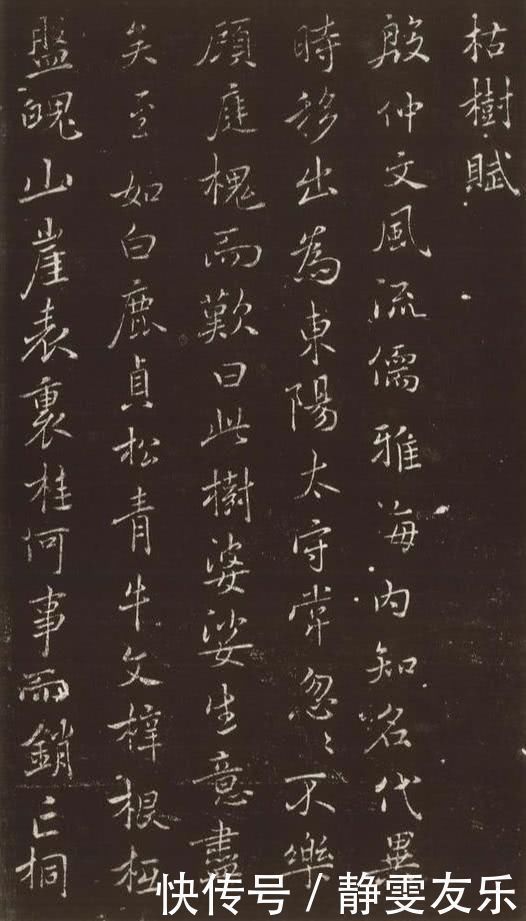 枯樹賦
殷仲文風流儒雅海内知名代異
時移出為東陽太守常忽〻不樂
顧庭槐而歎曰此樹婆娑生意盡
矣至如白鹿貞松青牛文梓根柢
盤魄山崖表裏桂何事而銷亡桐
快传号/静雯友乐